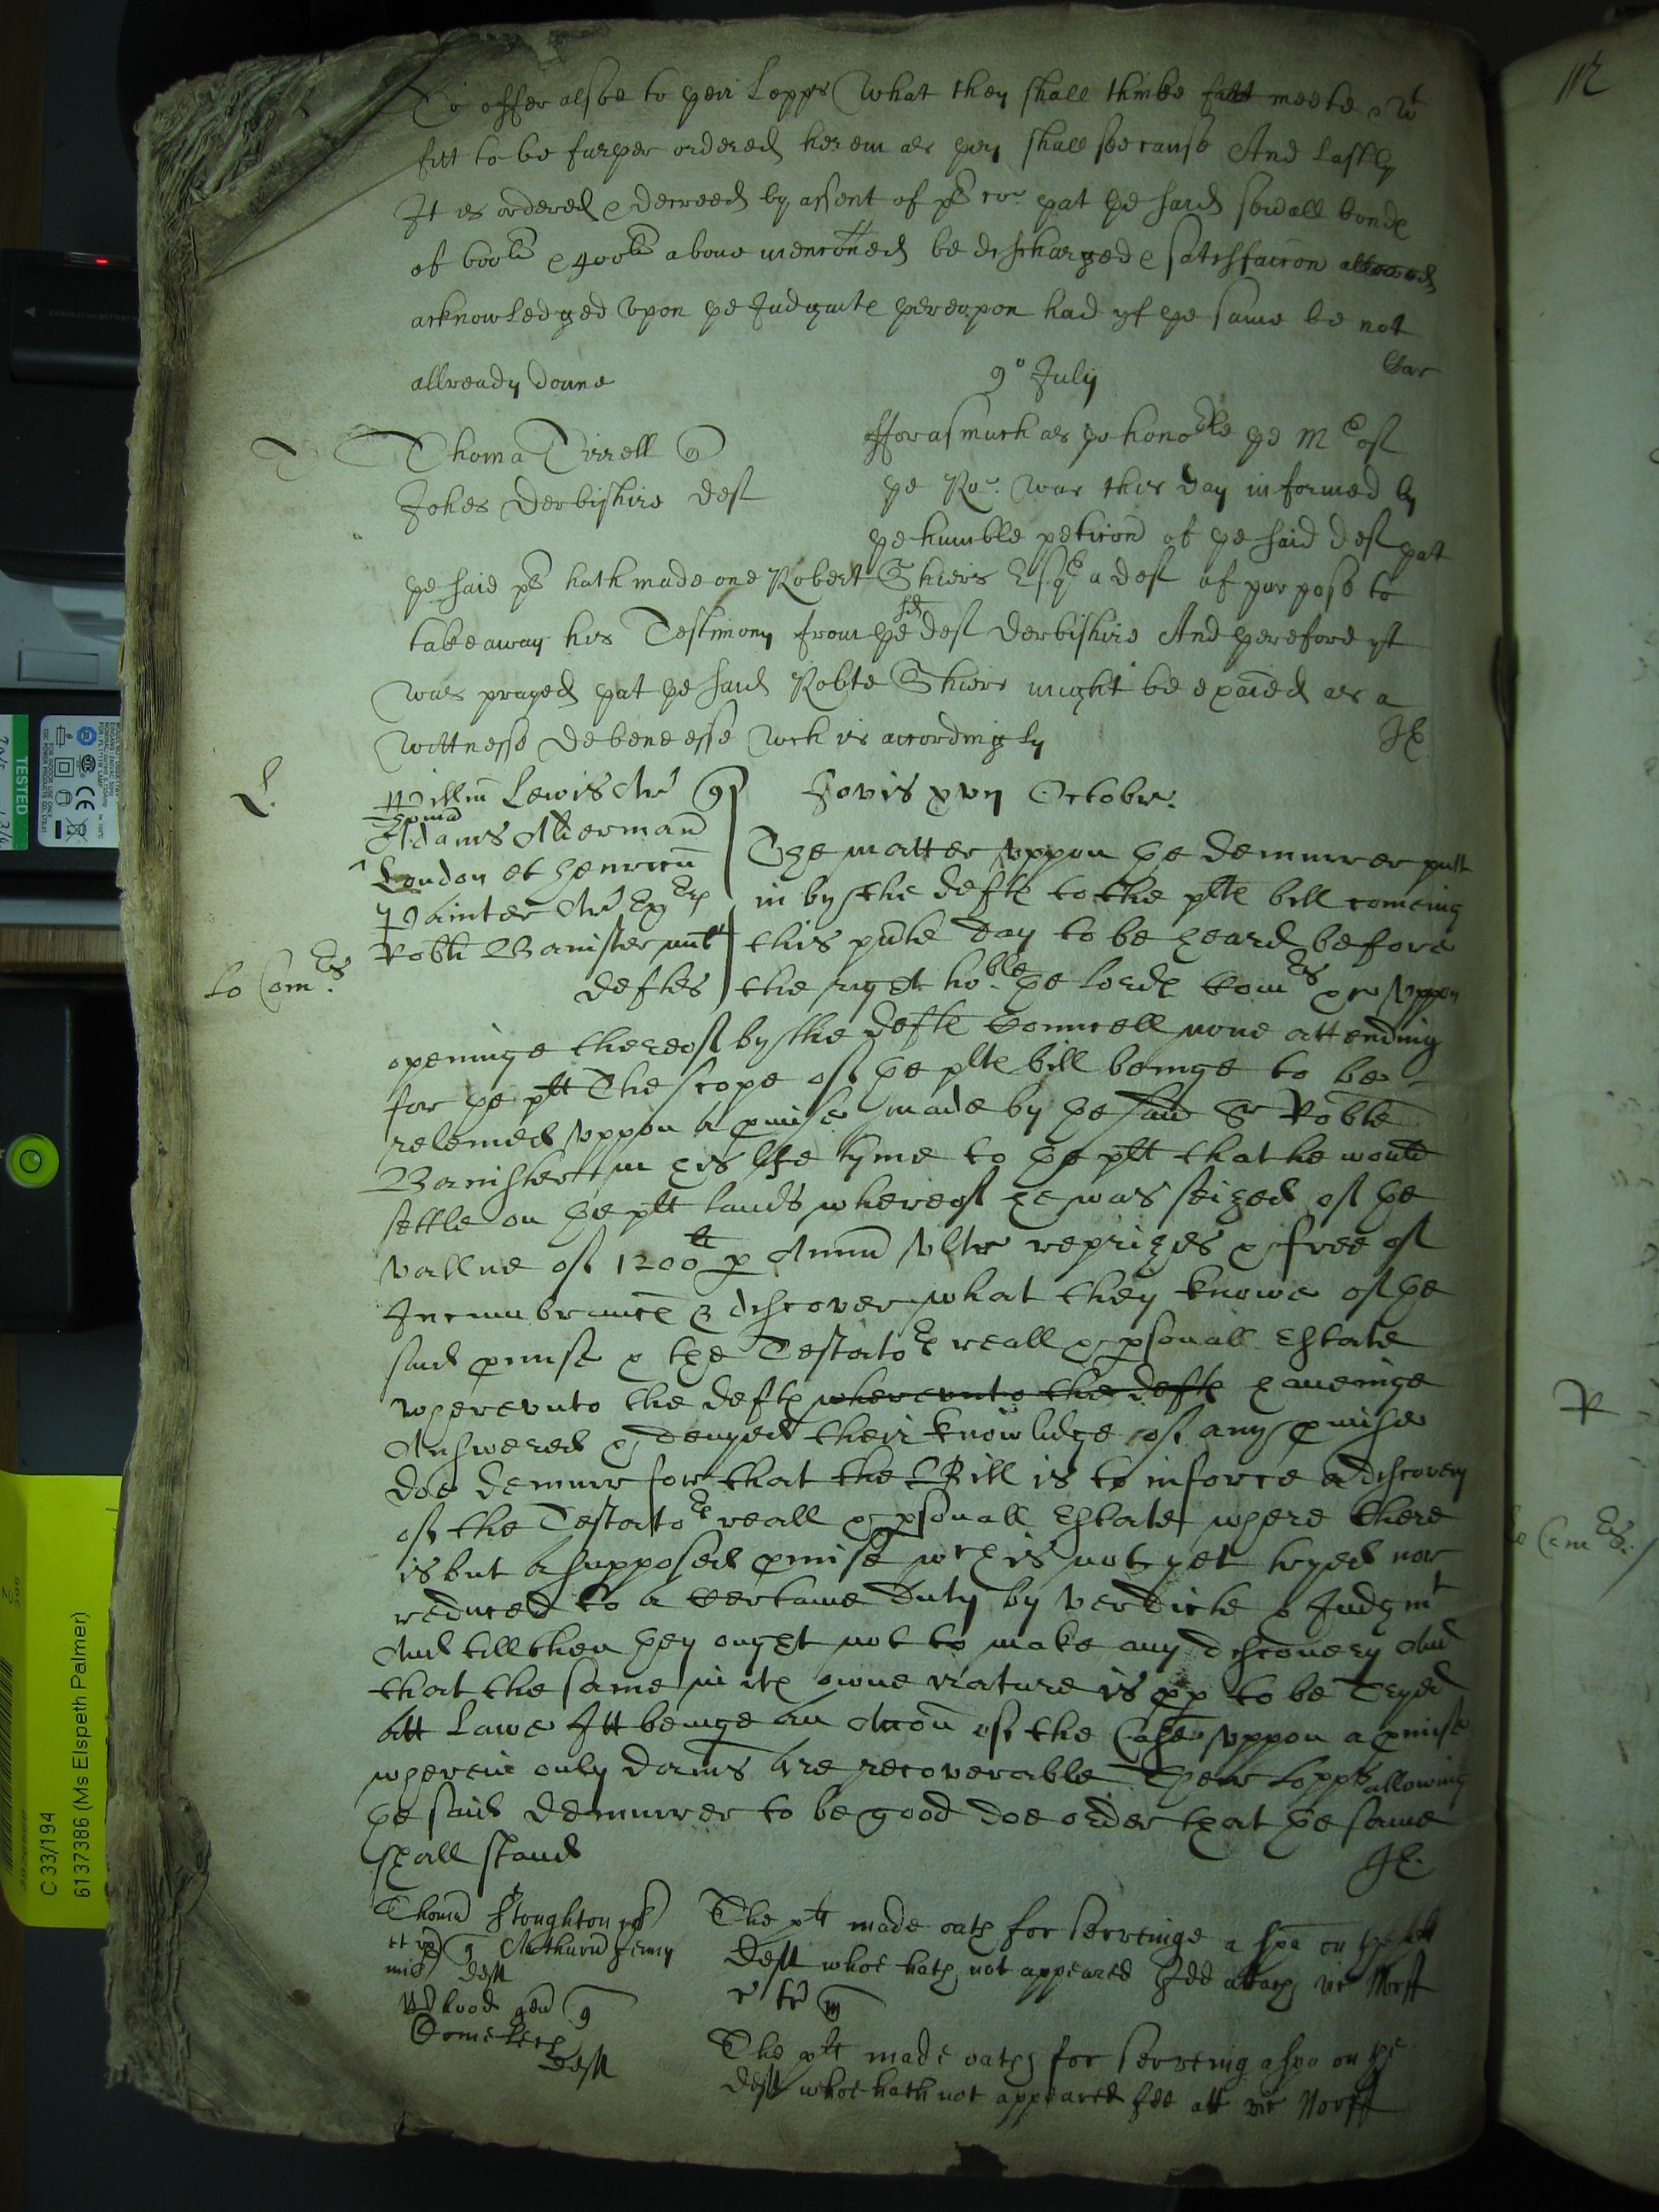 To offer alsoe to yeir Lopps What they shall thinke meete &
fitt to be furyer ordered herein as yey shall see cause And Lastly
It is ordered & decreed by assent of pts yat ye said sevrall bonds
of 600li & 400li above menconed be discharged & satisfaccon
acknowledged vpon ye Judgmts yerevpon had yf ye same be not
allready donne
9o July
Thoma Tirrell
Johes Derbishire Deft
fforasmuch as ye honoble ye Mr of
ye Ro: was this day informed by
ye humble peticon of ye said deft yat
ye said pt hath made one Robert Shiers Esqr a deft of purpose to
take away his Testimony from ye sd deft Derbishire And yerefore yt
was prayed yat ye said Robte Shiers might be exaied as a
wittnesse De bene esse wch is accordingly
JE
L.
Willm Lewis Ar
Adams Alderman
London et Henricu
Painter Ar Exrs
Robti Banister
deftes
Lo Comrs
Jovis xvij Octobr.
The matter vppon ye demurrer putt
in by the defts to the plts bill comeing
this pnte Day to be heard before
the right hoble ye lords Comrs & vppon
openinge thereof by the defts Councell none attending
for ye plt The scope of ye plts bill beinge to be
releived vppon a pmise made by ye said Sr Robte
Banister in his life tyme to ye plt that he would
settle on ye plt lands whereof he was seized of ye
vallue of 1200li p Annu vltr reprizes & free of
Incumbrances & discover what they knowe of ye
said pmise & the Testators reall & psonall Estate
wherevnto the defts wherevnto the defts haueinge
Answered & denyed their knowledge of any pmise
doe demurr for that the Bill is to inforce a discovery
of the Testators reall & psonall Estate where there
is but a supposed pmise wch is not yet tryed nor
reduced to a certaine Duty by verdicte & Judgmt
And till then yey ought not to make any discouery And
that the same in its owne nature is pp to be Tryed
att Lawe Itt beinge an Accon of the Case vppon a pmise
wherein only dams are recoverable Their Lopps allowing
ye said demurrer to be good doe order that ye same
shall stand
JE.
Thoma Stoughton
Deft
The plt made oath for serveinge a spa on ye
Deft whoe hath not appeared Ideo attach vic Norff
Wood gen
Deft
The plt made oath for serveing a spa on ye
Deft whoe hath not appeared Ideo att vic Norff
Lo Comrs.
TESTED
C 33/194
6137386 (Ms Elspeth Palmer)